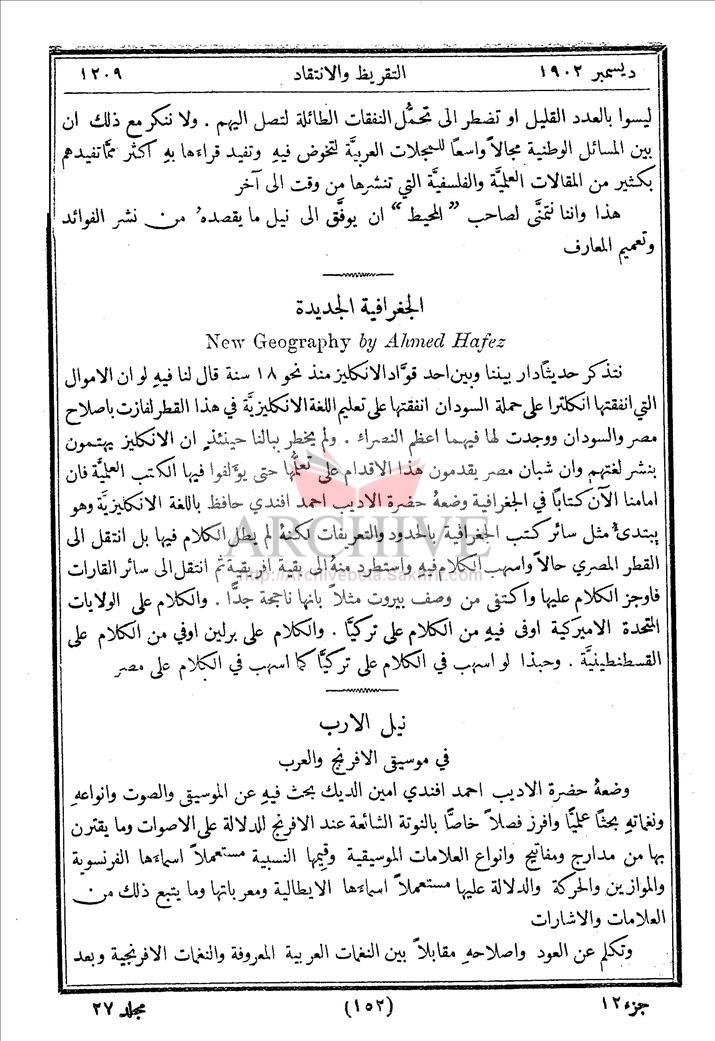 ديسمبر ١٩٠٢ التقريظ والانتقاد ١٢٠٩
ليسوا بالعدد القليل او تضطر الى تحمُّل النفقات الطائلة لتصل اليهم . ولا ننكر مع ذلك ان
بين المسائل الوطنية مجالاً واسعاً للمجلات العربيَّة لتخوض فيهِ وتفيد قراءها بهِ اكثر ممَّا تفيدهم
بكثير من المقالات العلميَّة والفلسفيَّة التي تنشرها من وقت الى آخر
هذا واننا نتمنَّى لصاحب ”المحيط“ ان يوفَّق الى نيل ما يقصده من نشر الفوائد
وتعميم المعارف
الجغرافية الجديدة
New Geography by Ahmed Hafez
نتذكر حديثاً دار بيننا وبين احد قوَّاد الانكليز منذ نحو ١٨ سنة قال لنا فيهِ لو ان الاموال
التي انفقتها انكلترا على حملة السودان انفقتها على تعليم اللغة الانكليزيَّة في هذا القطر لفازت باصلاح
مصر والسودان ووجدت لها فيهما اعظم النصراء . ولم يخطر ببالنا حينئذٍ ان الانكليز يهتمون
بنشر لغتهم وان شبان مصر يقدمون هذا الاقدام على تعلُّمها حتى يؤَلفوا فيها الكتب العلميَّة فان
امامنا الآن كتاباً في الجغرافية وضعهُ حضرة الاديب احمد افندي حافظ باللغة الانكليزيَّة وهو
يبتدئُ مثل سائر كتب الجغرافية بالحدود والتعريفات لكنهُ لم يطل الكلام فيها بل انتقل الى
القطر المصري حالاً واسهب الكلام فيهِ واستطرد منهُ الى بقية افريقية ثم انتقل الى سائر القارات
فاوجز الكلام عليها واكتفى من وصف بيروت مثلاً بانها ناجحة جدًّا . والكلام على الولايات
المتحدة الاميركية اوفى فيهِ من الكلام على تركيَّا . والكلام على برلين اوفي من الكلام على
القسطنطينيَّة . وحبذا لو اسهب في الكلام على تركيَّا كما اسهب في الكلام على مصر
نيل الارب
في موسيقى الافرنج والعرب
وضعهُ حضرة الاديب احمد افندي امين الديك بحث فيهِ عن الموسيقى والصوت وانواعهِ
ونغماتهِ بحثاً عمليًّا وافرز فصلاً خاصًّا بالنوتة الشائعة عند الافرنج للدلالة على الاصوات وما يقترن
بها من مدارج ومفاتيح وانواع العلامات الموسيقية وقيمها النسبية مستعملاً اسماءَها الفرنسوية
والموازين والحركة والدلالة عليها مستعملاً اسماءَها الايطالية ومعرباتها وما يتبع ذلك من
العلامات والاشارات
وتكلم عن العود واصلاحهِ مقابلاً بين النغمات العربية المعروفة والنغمات الافرنجية وبعد
جزء ١٢ (١٥٢) مجلد ٢٧
ARCHIVE
http://Archivebeta.Sakhrit.com